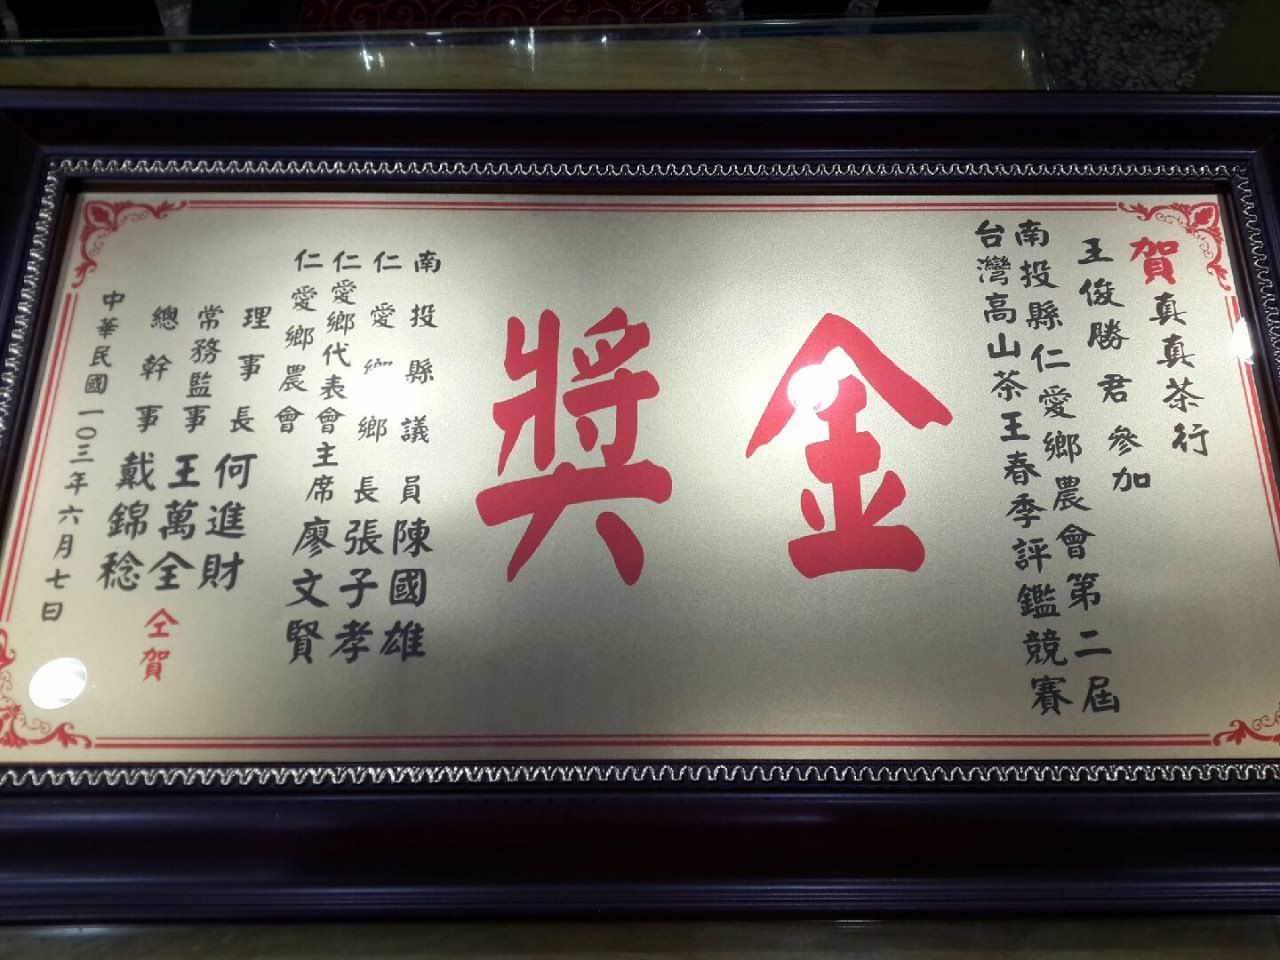 賀真真茶行
王俊勝君參加
南投縣仁愛鄉農會第二屆
台灣高山茶王春季評鑑競賽
金獎
南投縣議員陳國雄
仁愛鄉鄉長張子孝
仁愛鄉代表會主席廖文賢
仁愛鄉農會
理事長何進財
常務監事王萬全
總幹事戴錦稔
仝賀
中華民國一〇三年六月七日